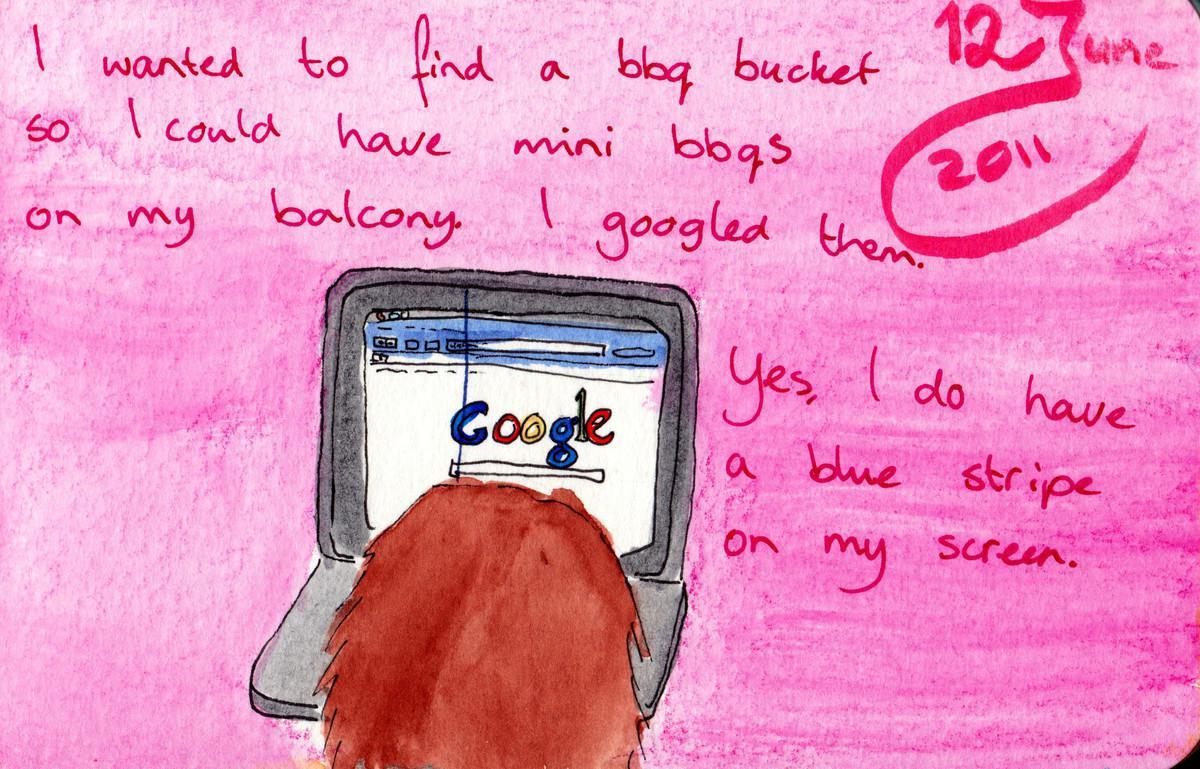 I wanted to find a bbq bucket
12 June
so I could have mini bbqs
2011
on my balcony. I googled them.
Google
Yes, I do have
a blue stripe
on my screen.